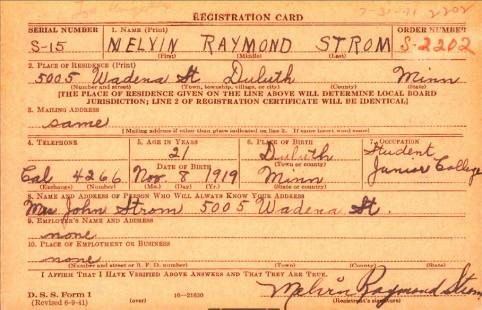 7-31-41 2202
REGISTRATION CARD
SERIAL NUMBER 1. NAME (Print) ORDER NUMBER
S-15 MELVIN RAYMOND STROM S-2202
(First) (Middle) (Last)
2. PLACE OF RESIDENCE (Print)
5005 Wadena St Duluth Minn
(Number and street) (Town, township, village, or city) (County) (State)
[THE PLACE OF RESIDENCE GIVEN ON THE LINE ABOVE WILL DETERMINE LOCAL BOARD
JURISDICTION; LINE 2 OF REGISTRATION CERTIFICATE WILL BE IDENTICAL]
3. MAILING ADDRESS
same
[Mailing address if other than place indicated on line 2. If same insert word same]
4. TELEPHONE 5. AGE IN YEARS 6. PLACE OF BIRTH 7. OCCUPATION
21 Duluth Student
DATE OF BIRTH (Town or county) Junior College
Cal 4266 Nov. 8 1919 Minn
(Exchange) (Number) (Mo.) (Day) (Yr.) (State or country)
8. NAME AND ADDRESS OF PERSON WHO WILL ALWAYS KNOW YOUR ADDRESS
Mrs John Strom 5005 Wadena St.
9. EMPLOYER'S NAME AND ADDRESS
none
10. PLACE OF EMPLOYMENT OR BUSINESS
none
(Number and street or R. F. D. number) (Town) (County) (State)
I AFFIRM THAT I HAVE VERIFIED ABOVE ANSWERS AND THAT THEY ARE TRUE.
D. S. S. Form 1 Melvin Raymond Strom
(Revised 6-9-41) (over) 16—21630 (Registrant's signature)